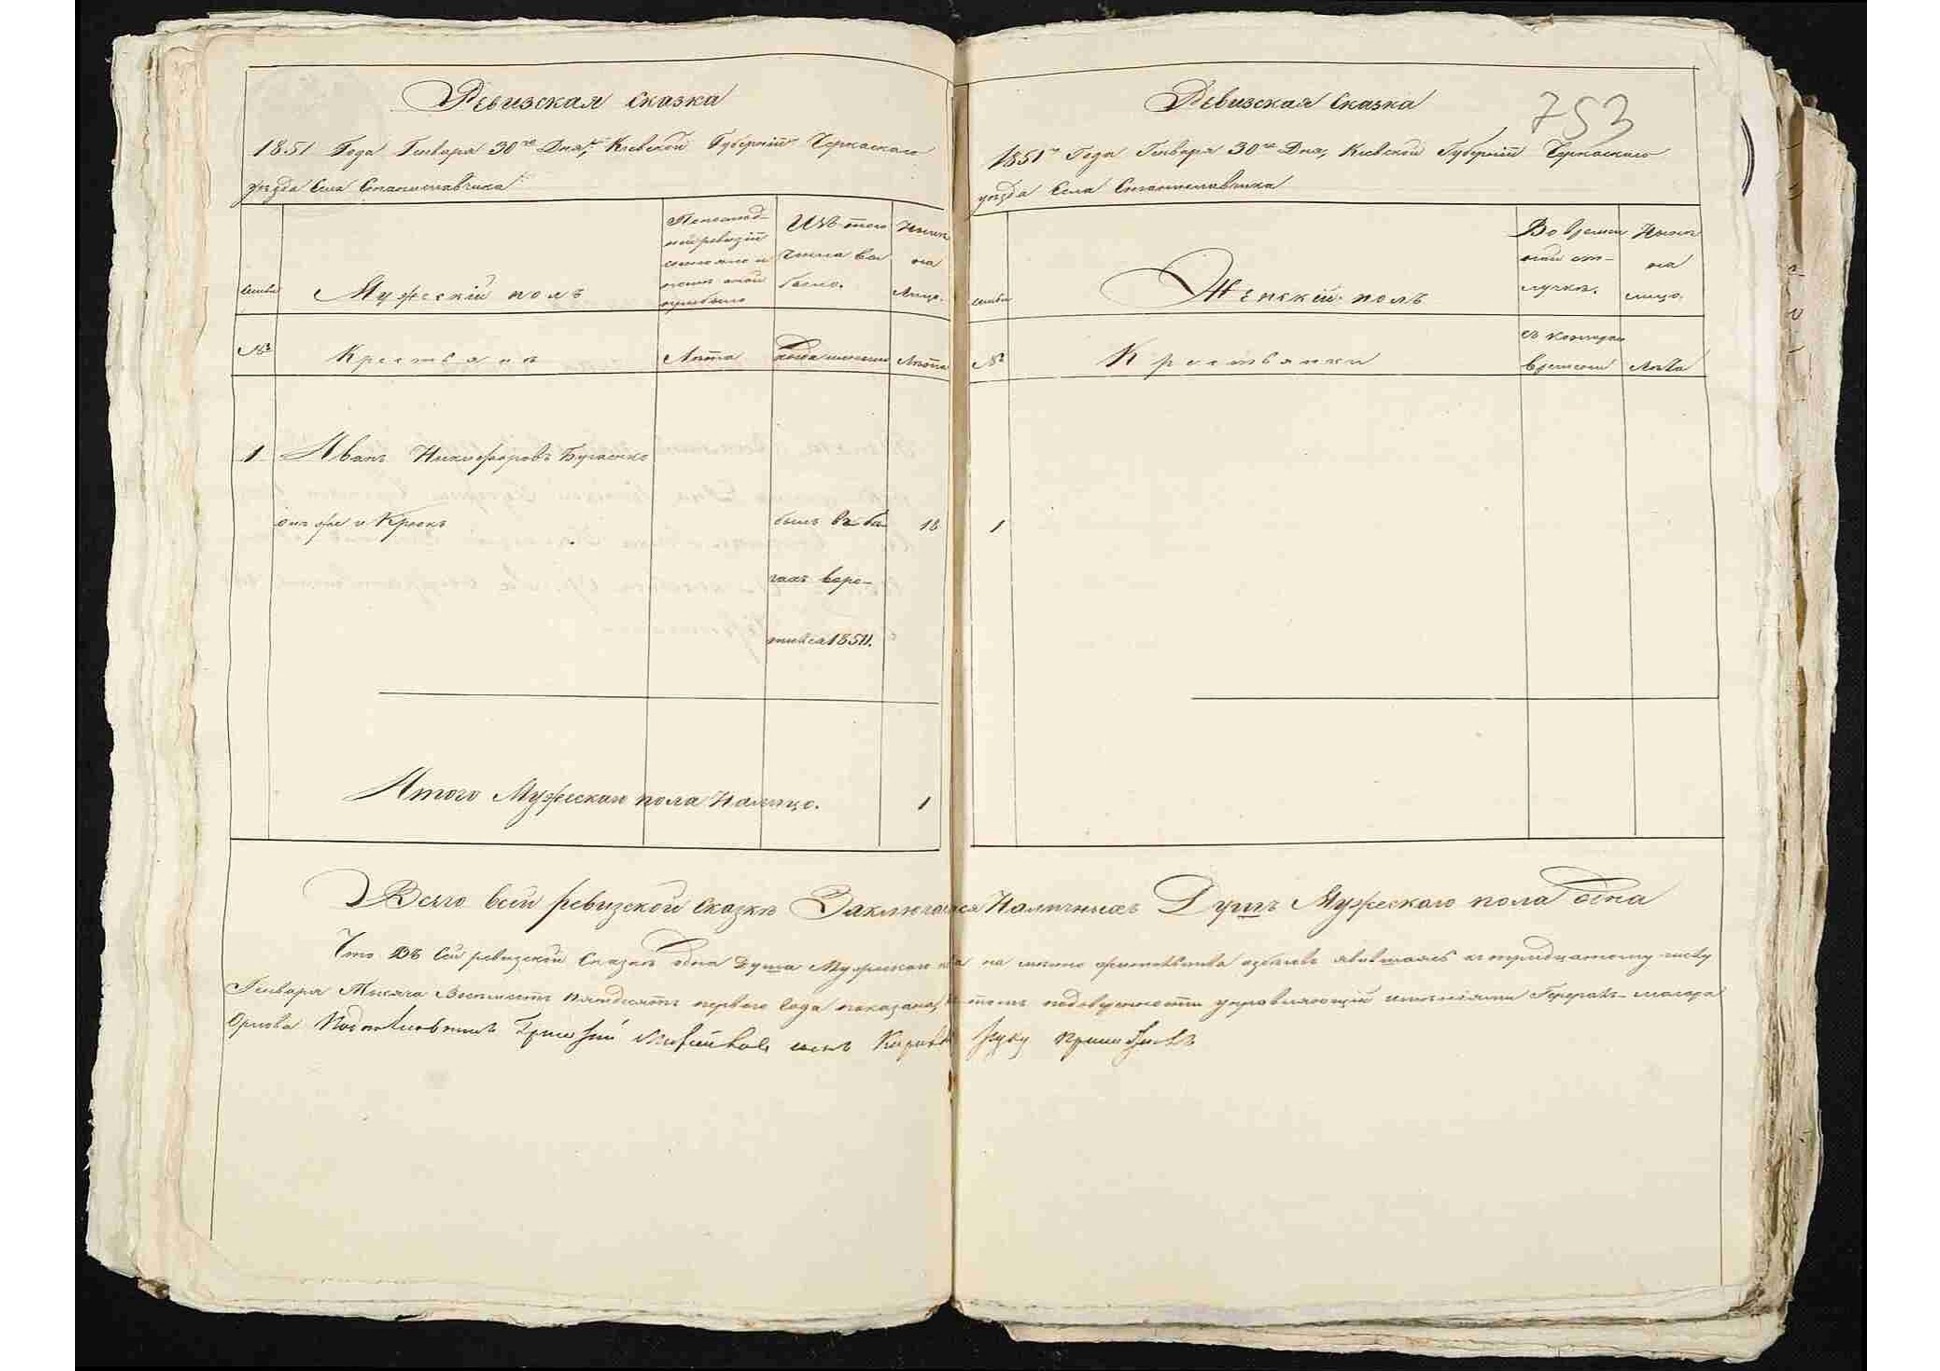 Ревизская сказка
1851 Года Генваря 30го Дня, Киевской Губернии Черкаскаго
уезда Села Станиславчика
Семьи
Мужескій полъ
По последней ревизіи состояло и после оной прибыло
Изъ того числа выбыло.
Ныне на Лицо.
№
Крестьяне
Лета
Когда именно
Лета
1 Иванъ Никифоровъ Бугаенко
онъ же и Крюкъ
былъ въ бе- 18
гахъ воро-
тився 1851г.
Итого Мужескаго пола Налицо. 1
Ревизская Сказка
753
1851го Года Генваря 30го Дня, Киевской Губерніи Черкаскаго
уезда Села Станиславчика
Семьи
Женскій полъ
Во временной от-лучке.
Ныне на лицо.
№
Крестьянки
съ котораго времени
Лета
1
Всего всей ревизской сказке Заключается Наличныхъ Душъ Мужескаго пола одна
Что въ сей ревизской Сказке одна Душа Мужескаго пола на место жительства явившаяся къ тридцатому числу
Генваря Тысяча Восемьсотъ пятдесятъ перваго Года показана, въ томъ подписуюсь управляющій именіями Генералъ-маіора
Орлова Подполковникъ сынъ руку приложилъ